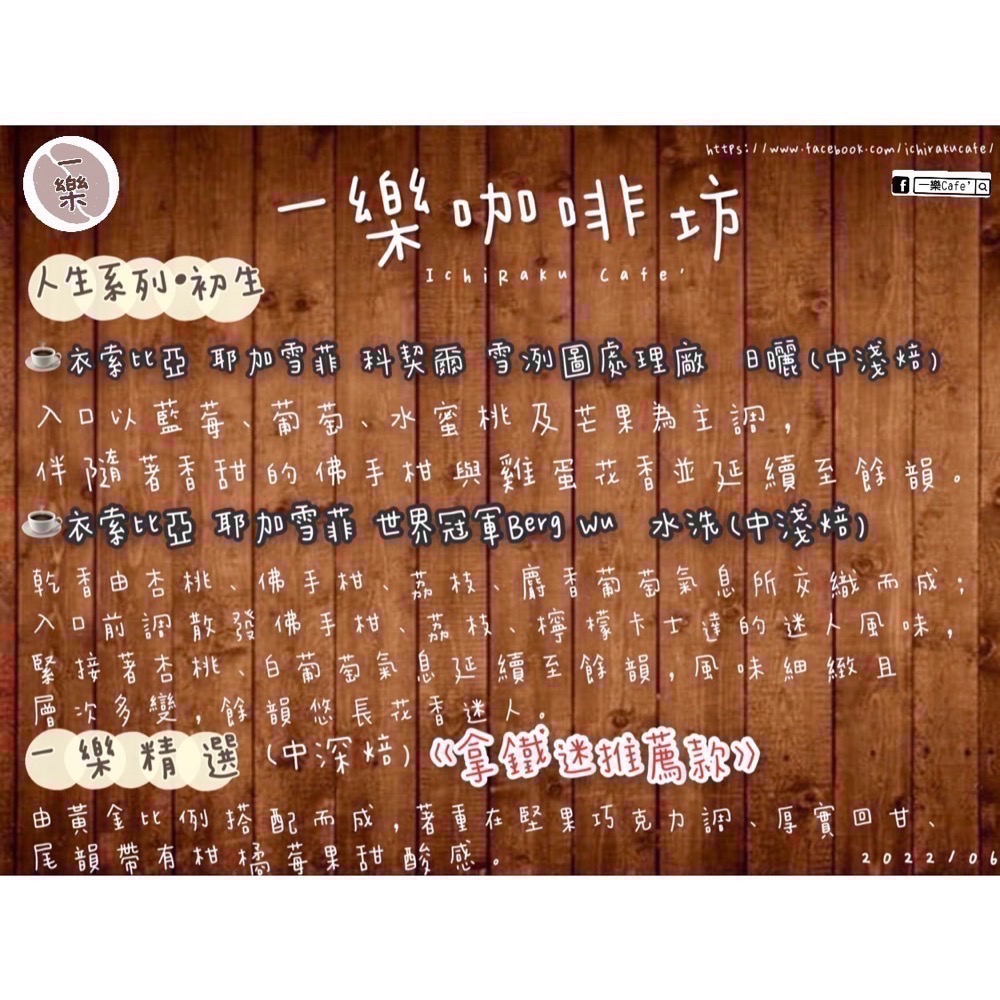 一樂
https://www.facebook.com/ichirakucafe/
一樂Cafe'
一樂咖啡坊
IchiRaku Cafe'
人生系列•初生
衣索比亞 耶加雪菲 科契爾 雪冽圖處理廠 日曬(中淺焙)
入口以藍莓、葡萄、水蜜桃及芒果為主調，
伴隨著香甜的佛手柑與雞蛋花香並延續至餘韻。
衣索比亞 耶加雪菲 世界冠軍Berg Wu 水洗(中淺焙)
乾香由杏桃、佛手柑、荔枝、麝香葡萄氣息所交織而成；
入口前調散發佛手柑、荔枝、檸檬卡士達的迷人風味，
緊接著杏桃、白葡萄氣息延續至餘韻，風味細緻且
層次多變，餘韻悠長花香迷人。
一樂精選 (中深焙)《拿鐵迷推薦款》
由黃金比例搭配而成，著重在堅果巧克力調、厚實回甘、
尾韻帶有柑橘莓果甜酸感。
2022/06